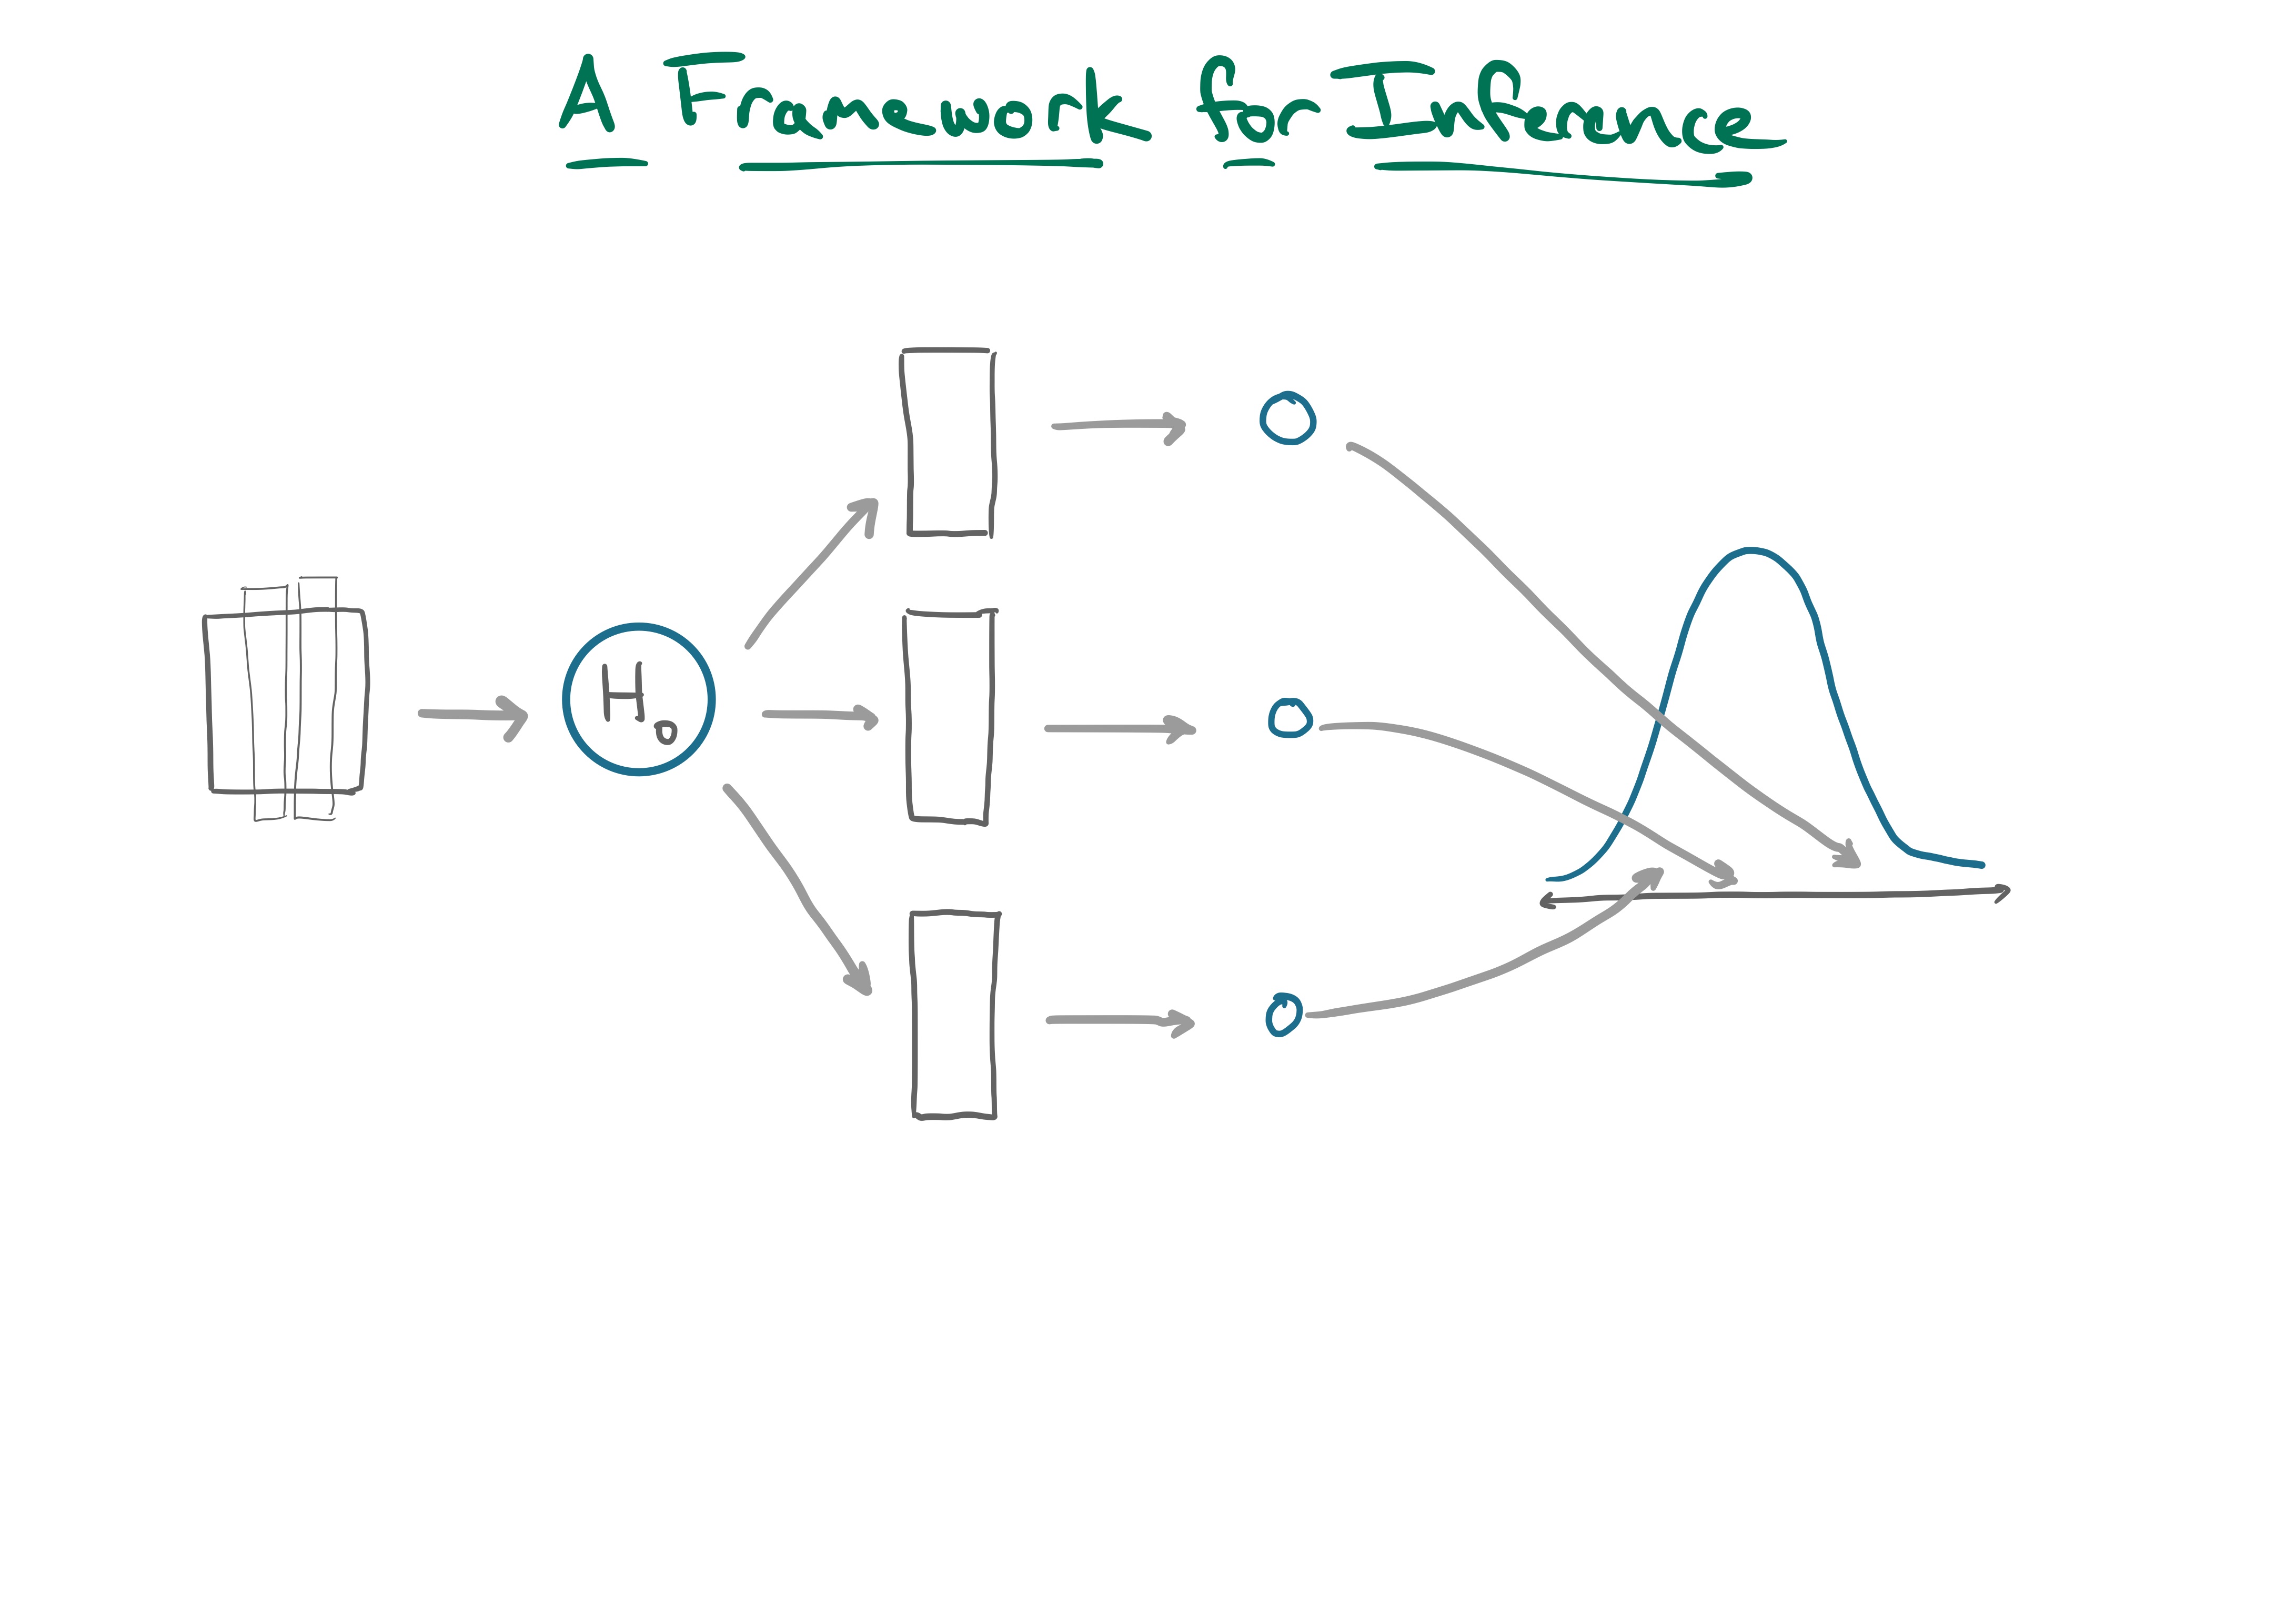 A Framework for Inference
H₀